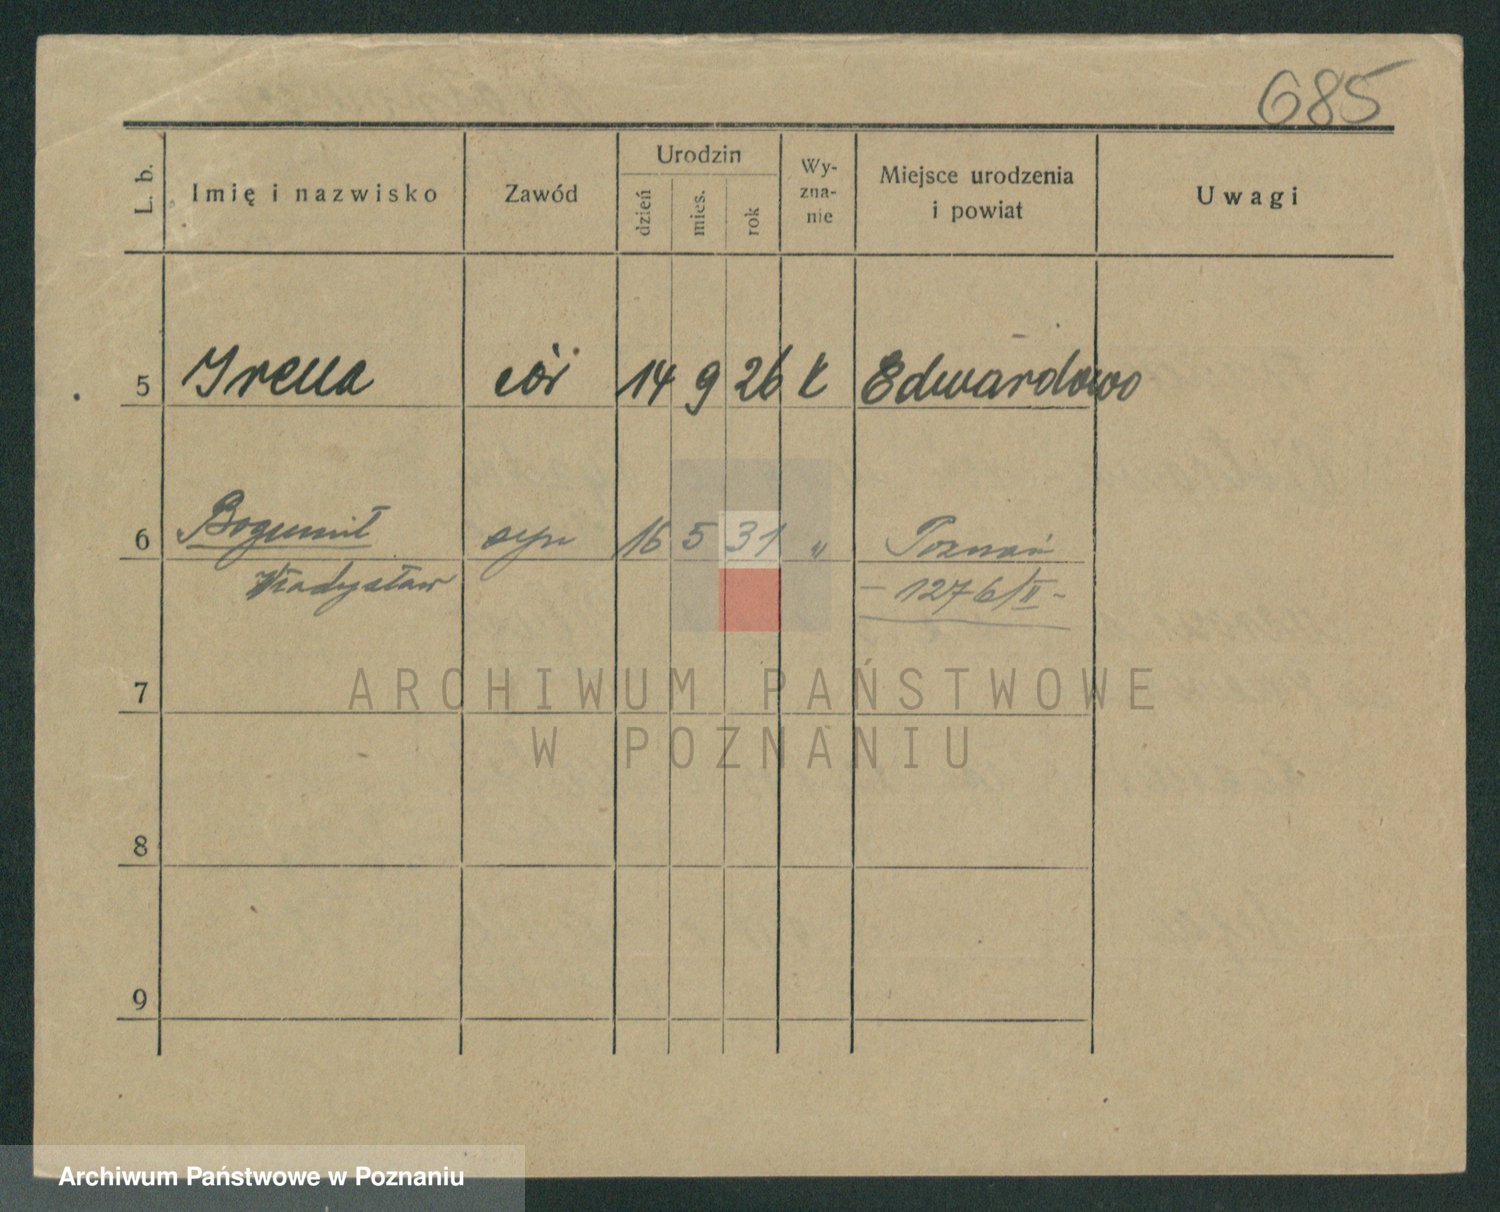 685
L. b.
Imię i nazwisko
Zawód
Urodzin
dzień
mies.
rok
Wy-
zna-
nie
Miejsce urodzenia
i powiat
Uwagi
5 Irena cór 14 9 26 k Edwardowo
6 Bogumił syn 16 5 31 „ Poznań
Władysław - 1276/II -
7
ARCHIWUM PAŃSTWOWE
W POZNANIU
8
9
Archiwum Państwowe w Poznaniu